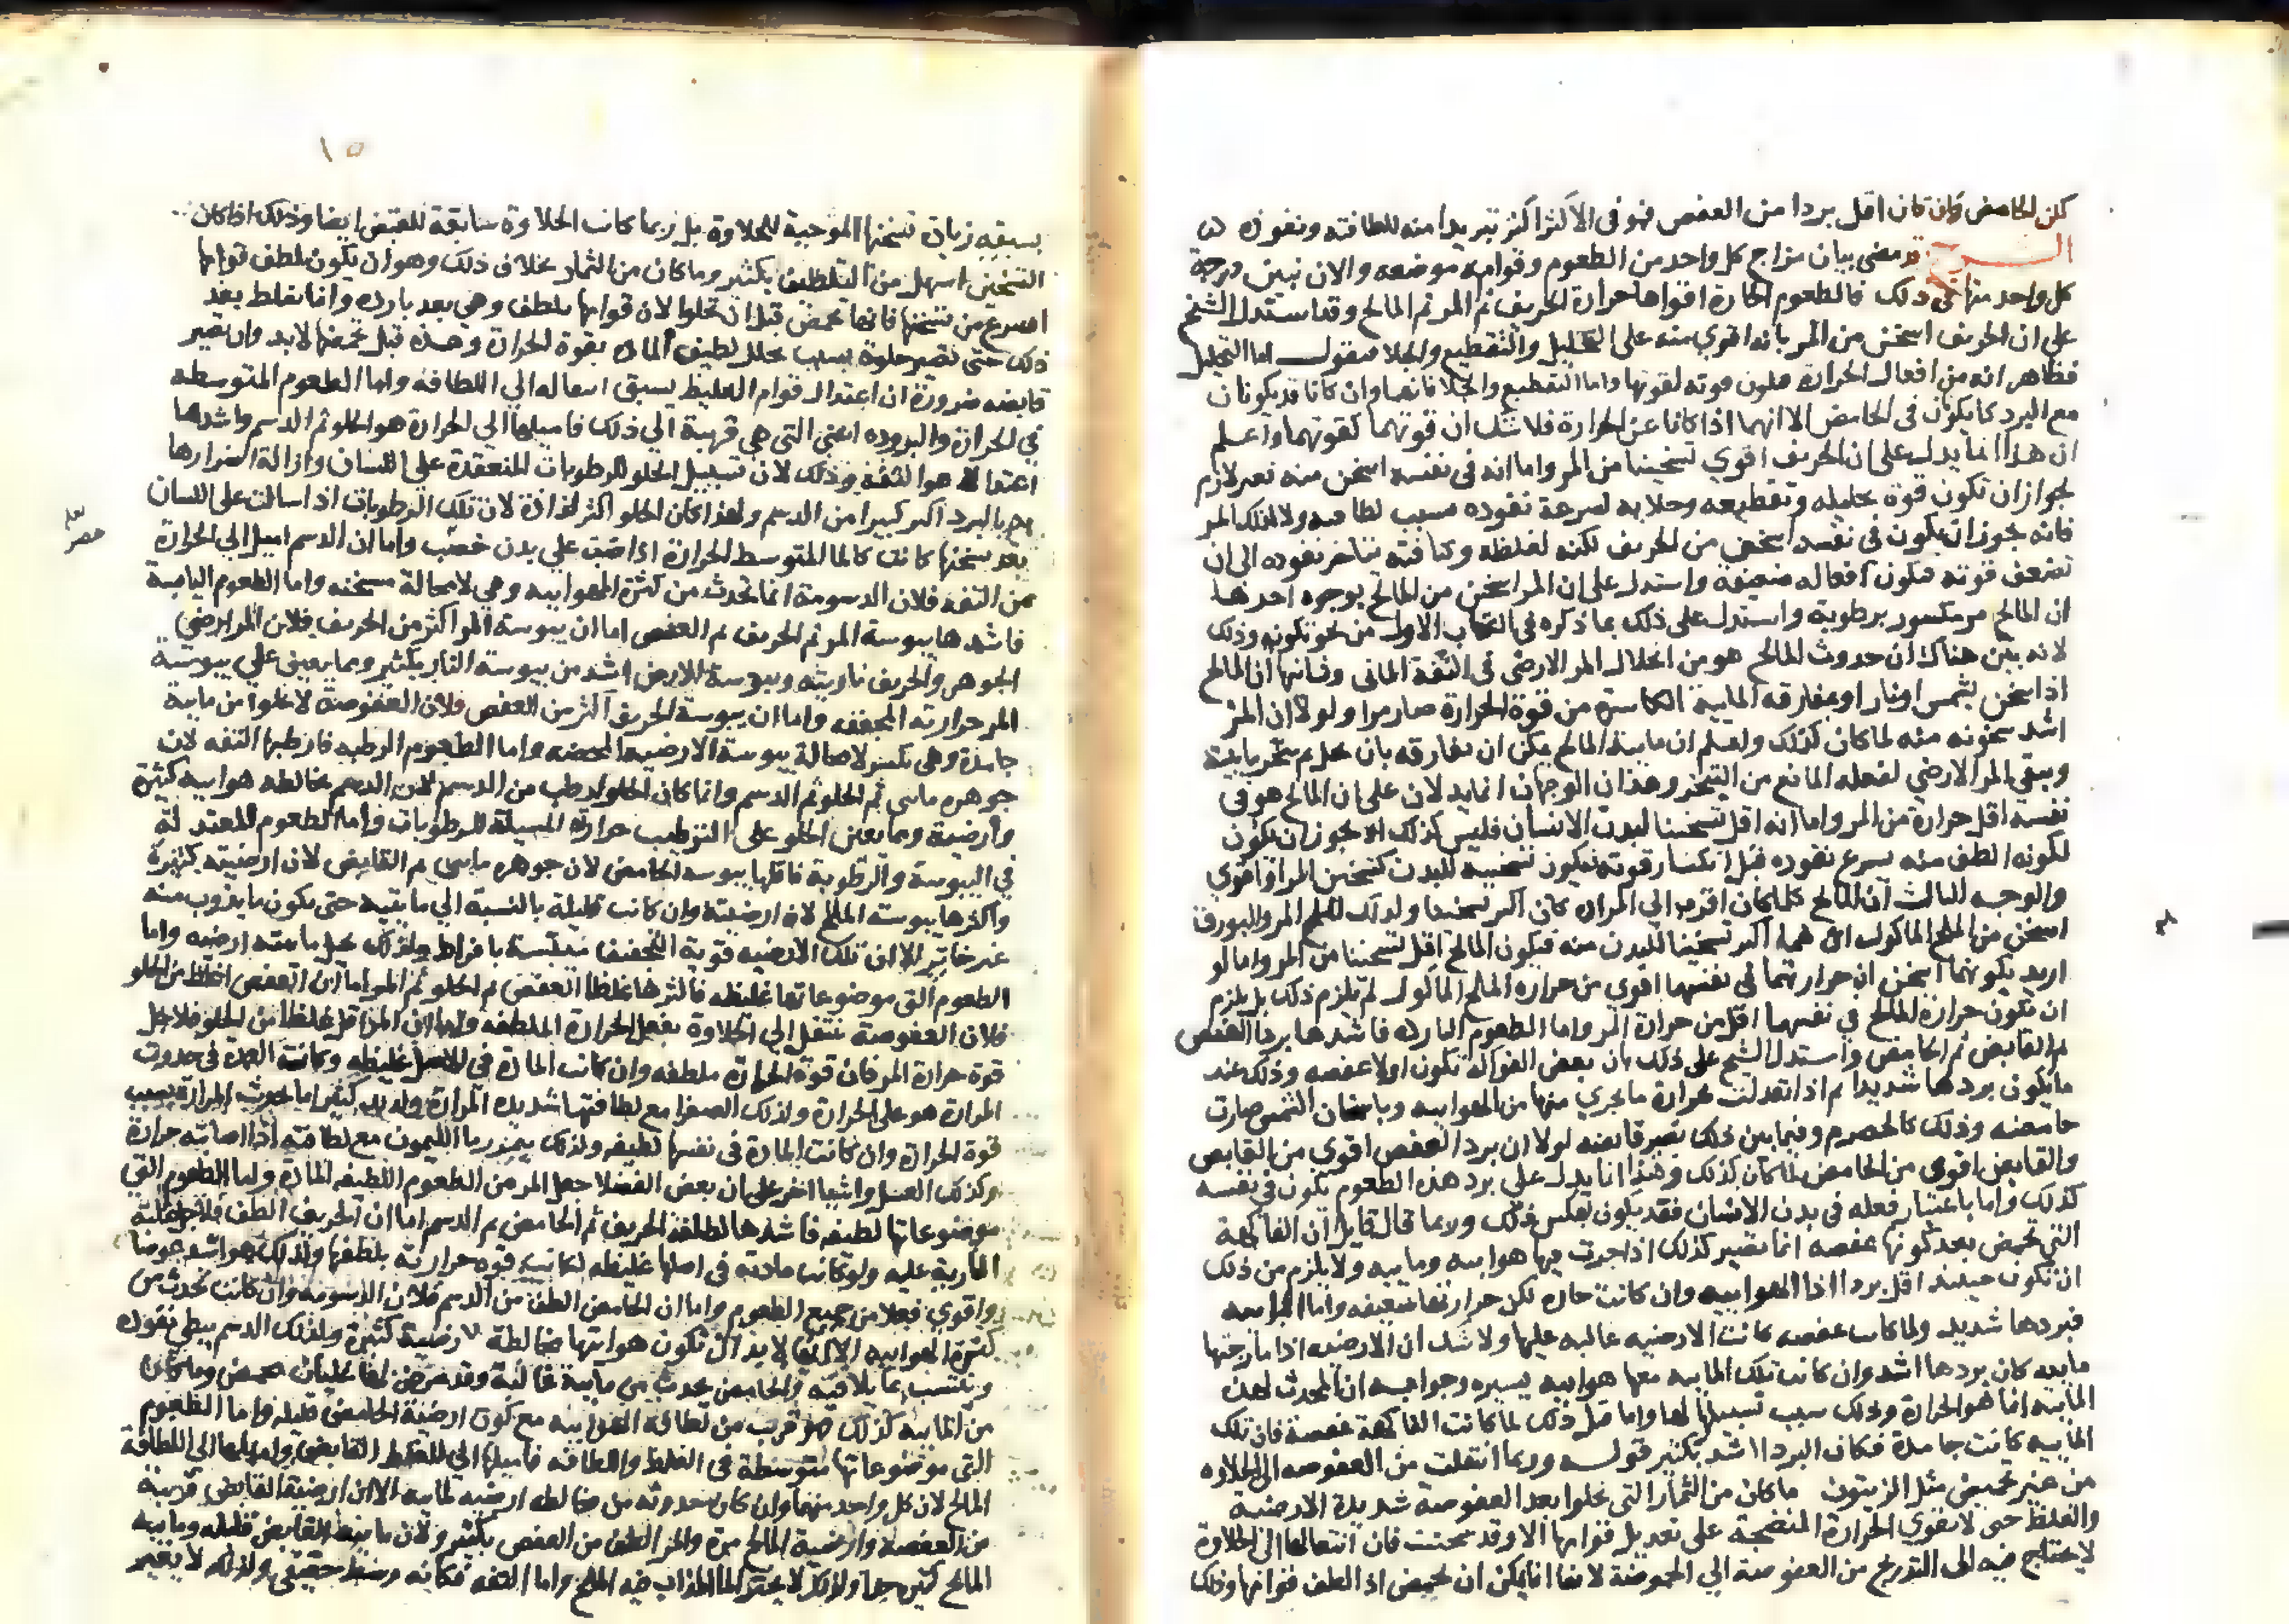 لكن الحامض وان كان اقل بردا من العفص فهو فى الاكثر اكثر تبريدا منه للطافته ونفوذه
الشرح قد مضى بيان مزاج كل واحد من الطعوم وقوامه موضعه والان نبين درجة
كل واحد منها فى ذلك فالطعوم الحارة اقواها حرارة الحريف ثم المر ثم المالح وقد استدل الشيخ
على ان الحريف اسخن من المر بانه اقوي منه على التحليل والتقطيع والجلا فنقول اما التحليل
فظاهر انه من افعال الحرارة فتكون قوته لقوتها واما التقطيع والجلا فانهما وان كانا قد يكونان
مع البرد كما يكون فى الحامض الا انهما اذا كانا عن الحرارة فلا شك ان قوتهما لقوتهما واعلم
ان هذا انما يدل على ان الحريف اقوي تسخينا من المر واما انه فى نفسه اسخن منه فغير لازم
لجواز ان تكون قوة تحليله وتقطيعه وجلايه لسرعة نفوذه بسبب لطافته ولا كذلك المر
فانه يجوز ان يكون فى نفسه اسخن من الحريف لكنه لغلظه وكثافته يتاخر نفوذه الى ان
تضعف قوته فتكون افعاله ضعيفة واستدل على ان المر اسخن من المالح بوجوه احدها
ان المالح مر مكسور برطوبة واستدل على ذلك بما ذكره فى الكتاب الاول من نحو تكونه وذلك
لانه بين هناك ان حدوث المالح هو من اختلاط المر الارضى فى التفه المائى وثانيها ان المالح
اذا سخن بشمس او نار او بمفارقه المايية الكاسرة من قوة الحرارة صار مرا ولولا ان المر
اشد سخونه منه لما كان كذلك ولعلم ان مايية المالح يمكن ان تفارقه بان تحلل بتبخر ماييته
ويبقى المر الارضي لثقله المانع من التبخر وهذان الوجهان انما يدلان على ان المالح هو فى
نفسه اقل حرارة من المر واما انه اقل تسخينا لبدن الانسان فليس كذلك اذ يجوز ان يكون
لكونه الطف منه يسرع نفوذه قبل انكسار قوته فيكون تسخينه للبدن كتسخين المر او اقوي
والوجه الثالث ان المالح كلما كان اقرب الى المرارة كان اكثر تسخينا ولذلك الملح المر والبورق
اسخن من الملح الماكول اى هما اكثر تسخينا للبدن منه فيكون المالح اقل تسخينا من المر واما لو
اريد بكونهما اسخن ان حرارتهما فى نفسهما اقوي من حرارة الملح الماكول لم يلزم ذلك بل يلزم
ان تكون حرارة المالح في نفسها اقل من حرارة المر واما الطعوم الباردة فاشدها بردا العفص
ثم القابض ثم الحامض واستدل الشيخ على ذلك بان بعض الفواكه تكون اولا عفصه وذلك عند
ما يكون بردها شديدا ثم اذا اعتدلت بحرارة ما يجري منها من الهواييه وباسخان الشمس صارت
حامضه وذلك كالحصرم وفيما بين ذلك تصير قابضه لولا ان برد العفص اقوى من القابض
والقابض اقوى من الحامض لما كان كذلك وهذا انما يدل على برد هذه الطعوم يكون في نفسه
كذلك واما باعتبار فعله فى بدن الانسان فقد يكون بعكس ذلك وربما قال قايل ان الفاكهة
التي تحمض بعد كونها عفصه انما تصير كذلك اذا جرت فيها هواييه وماييه ولا يلزم من ذلك
ان تكون حينيذ اقل بردا اذ الهواييه وان كانت حاره لكن حرارتها ضعيفه واما الماييه
فبردها شديد ولما كانت عفصه كانت الارضيه غالبه عليها ولا شك ان الارضيه اذا مازجتها
ماييه كان بردها اشد وان كانت تلك الماييه معها هواييه يسيره وجوابه ان المحدث لهذه
الماييه انما هو الحرارة وذلك سبب تسييلها لها واما قبل ذلك لما كانت الفاكهة عفصة فان تلك
الماييه كانت جامدة فكان البرد اشد بكثير قوله وربما انتقلت من العفوصه الى الحلاوه
من غير تحميض مثل الزيتون ما كان من الثمار التى تحلو بعد العفوصة شديدة الارضية
والغلظ حتى لا تقوي الحرارة المنضجة على تعديل قوامها الا وقد سخنت فان انتقالها الى الحلاوة
لا يحتاج فيه الى التدرج من العفوصة الي الحموضة لانها انما يمكن ان تحمض اذا لطف قوامها وذلك
١٥
يسبقه زيادة تسخنها الموجبة للحلاوة بل ربما كانت الحلاوة سابقة للقبض ايضا وذلك اذا كان
التسخين اسهل من التلطيف بكثير وما كان من الثمار بخلاف ذلك وهو ان يكون تلطف قوامها
اسرع من تسخنها فانها تحمض قبل ان تحلوا لان قوامها يلطف وهي بعد بارده وانما تغلظ بعد
ذلك حتى تصير حلوة بسبب تحلل لطيف الماده بقوة الحرارة وهذه قبل تحمضها لا بد وان تصير
قابضه ضرورة ان اعتدال قوام الغليظ يسبق انتقاله الى اللطافة واما الطعوم المتوسطه
في الحرارة والبروده اعني التي هي قريبة الي ذلك فاميلها الي الحرارة هو الحلو ثم الدسم واشدها
اعتدالا هو التفه وذلك لان تسييل الحلو للرطوبات المنعقدة على اللسان وازالة اضرارها
بالبرد اكثر كثيرا من الدسم ولهذا كان الحلو اكثر لذاذة لان تلك الرطوبات اذا سالت على اللسان
بعد سخنها كانت كالما المتوسط الحرارة اذا صب علي بدن خصب واما ان الدسم اميل الي الحرارة
من التفه فلان الدسومة انما تحدث من كثرة الهواييه وهي لا محالة مسخنه واما الطعوم اليابسة
فاشدها يبوسة المر ثم الحريف ثم العفص اما ان يبوسة المر اكثر من الحريف فلان المر ارضي
الجوهر والحريف ناريته ويبوسة الارض اشد من يبوسة النار بكثير ومما يعين علي يبوسة
المر حرارته المجففه واما ان يبوسة الحريف اكثر من العفص فلان العفوصة لا تخلوا من ماييه
جامدة وهي تكسر لا محالة يبوسة الارضيه المحضه واما الطعوم الرطبه فارطبها التفه لان
جوهره مايى ثم الحلو ثم الدسم وانما كان الحلو ارطب من الدسم لان الدسم تخالطه هواييه كثيرة
وارضية ومما يعين الحلو على الترطيب حرارته المسيلة للرطوبات واما الطعوم المعتدلة
في اليبوسة والرطوبة فاقلها يبوسه الحامض لان جوهره مايى ثم القابض لان ارضيته كثيرة
واكثرها يبوسة المالح لان ارضيته وان كانت قليلة بالنسبة الي ماييته حتى تكون ما يذوب منه
غير خاثر الا ان تلك الارضيه قوية التجفيف متيبسة بافراط ولذلك تحيل ماييته ارضيه واما
الطعوم التى موضوعاتها غليظه فاكثرها غلظا العفص ثم الحلو ثم المر اما ان العفص اغلظ من الحلو
فلان العفوصة تنتقل الى الحلاوة بفعل الحرارة الملطفه واما ان المر اقل غلظا من الحلو فلاجل
قوة حرارة المر فان قوة الحرارة ملطفه وان كانت المادة فى الاصل غليظه وكانت العمدة فى حدوث
المرارة هو على الحرارة ولذلك الصفرا مع لطافتها شديده المرارة ولذلك كثيرا ما تحدث المرارة بسبب
قوة الحرارة وان كانت المادة فى نفسها لطيفه ولذلك يمرر ما الليمون مع لطافته اذا اصابته حرارة
وكذلك العسل واشيا اخر على ان بعض الفضلا جعل المر من الطعوم اللطيفه المادة واما الطعوم التي
موضوعاتها لطيفه فاشدها لطافة الحريف ثم الحامض ثم الدسم اما ان الحريف الطف فلاجل غلبة
النارية عليه ولو كانت مادته فى اصلها غليظه لكانت قوه حرارته تلطفها ولذلك هو اشد غوصا
واقوي فعلا من جميع الطعوم واما ان الحامض الطف من الدسم فلان الدسومة وان كانت تحدث من
كثرة الهواييه الا انها لا بد ان تكون هوايتها مخالطة لارضية كثيرة ولذلك الدسم يبطي نفوذه
ويلتصق بما يلاقيه والحامض يحدث من مايية غالبة وقد عرض لها غليان حمض وما كان
من الماييه كذلك فهو قريب من لطافة الهواييه مع كون ارضية الحامض قليله واما الطعوم
التى موضوعاتها متوسطة فى الغلظ واللطافه فاميلها الي الغلظ القابض واميلها الى اللطافة
المالح لان كل واحد منهما وان كان حدوثه من مخالطه ارضيه لماييه الا ان ارضية القابض قريبة
من العفصه وارضية المالح مرة والمر الطف من العفص بكثير ولان ماييه القابض قليله وماييه
المالح كثيره جدا ولذلك لا يخثر الما المذاب فيه الملح واما التفه فكانه وسط حقيقي ولذلك لا يغير